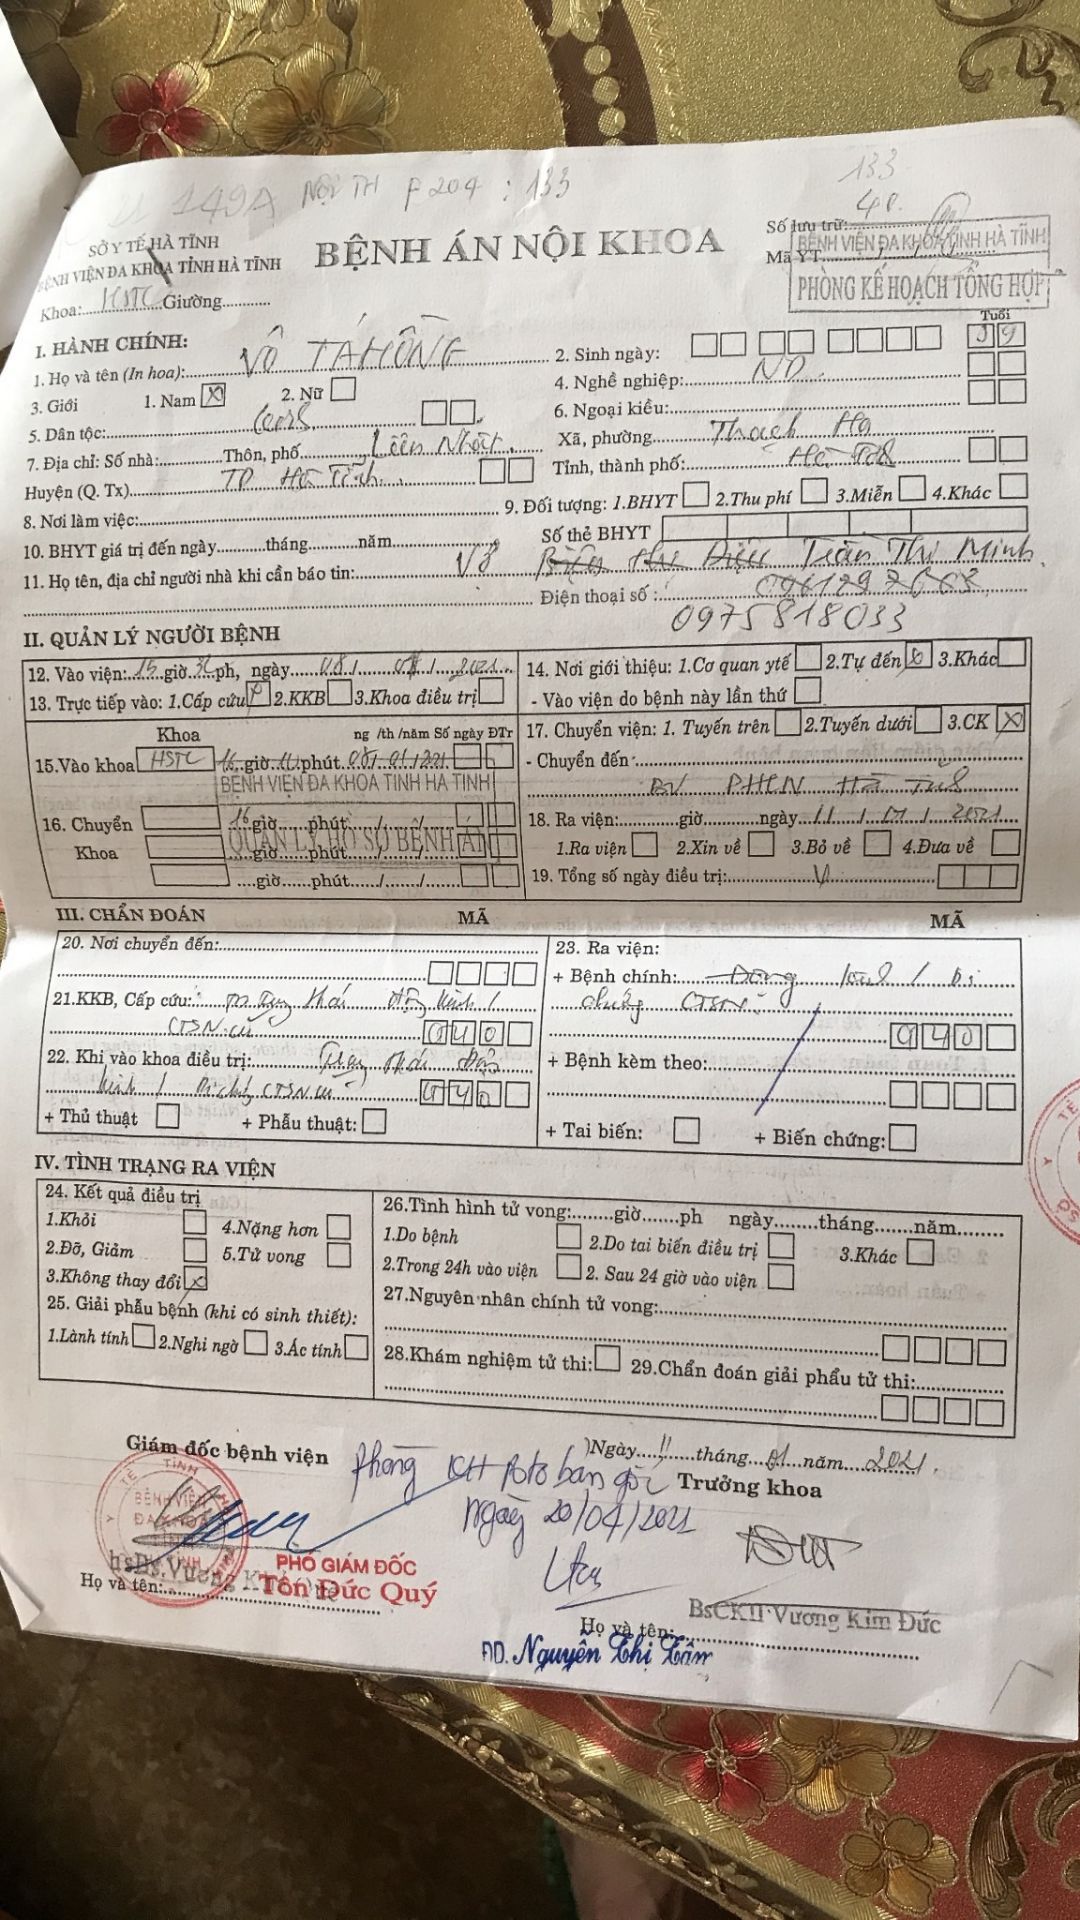 149A Nội TH P204 : 133
133
SỞ Y TẾ HÀ TĨNH
BỆNH VIỆN ĐA KHOA TỈNH HÀ TĨNH
Khoa: HSTC Giường
BỆNH ÁN NỘI KHOA
Số lưu trữ:
Mã YT
BỆNH VIỆN ĐA KHOA TỈNH HÀ TĨNH
PHÒNG KẾ HOẠCH TỔNG HỢP
I. HÀNH CHÍNH:
Tuổi
1. Họ và tên (In hoa): VÕ TÁ HỒNG 2. Sinh ngày: 39
3. Giới 1. Nam X 2. Nữ 4. Nghề nghiệp: ND
5. Dân tộc: 6. Ngoại kiều:
7. Địa chỉ: Số nhà: Thôn, phố Liên Nhật Xã, phường Thạch Hạ
Huyện (Q. Tx) TP Hà Tĩnh Tỉnh, thành phố: Hà Tĩnh
8. Nơi làm việc: 9. Đối tượng: 1.BHYT 2.Thu phí 3.Miễn 4.Khác
10. BHYT giá trị đến ngày tháng năm Số thẻ BHYT
11. Họ tên, địa chỉ người nhà khi cần báo tin: Vợ Trần Thị Minh
Điện thoại số :
0975818033
II. QUẢN LÝ NGƯỜI BỆNH
12. Vào viện: 15 giờ ph, ngày 2021
13. Trực tiếp vào: 1.Cấp cứu 2.KKB 3.Khoa điều trị
14. Nơi giới thiệu: 1.Cơ quan ytế 2.Tự đến 3.Khác
- Vào viện do bệnh này lần thứ
Khoa ng /th /năm Số ngày ĐTr
15.Vào khoa HSTC 16 giờ phút
BỆNH VIỆN ĐA KHOA TỈNH HÀ TĨNH
16. Chuyển 16 giờ phút / /
QUẢN LÝ HỒ SƠ BỆNH ÁN
Khoa giờ phút / /
giờ phút / /
17. Chuyển viện: 1. Tuyến trên 2.Tuyến dưới 3.CK X
- Chuyển đến:
BV PHCN Hà Tĩnh
18. Ra viện: giờ ngày 11 / 01 / 2021
1.Ra viện 2.Xin về 3.Bỏ về 4.Đưa về
19. Tổng số ngày điều trị:
III. CHẨN ĐOÁN MÃ MÃ
20. Nơi chuyển đến:
21.KKB, Cấp cứu: Trạng thái động kinh /
CTSN cũ G40
22. Khi vào khoa điều trị: Trạng thái động
kinh / Di chứng CTSN cũ G40
+ Thủ thuật + Phẫu thuật:
23. Ra viện:
+ Bệnh chính: Động kinh / Di
chứng CTSN
G40
+ Bệnh kèm theo:
+ Tai biến: + Biến chứng:
IV. TÌNH TRẠNG RA VIỆN
24. Kết quả điều trị
1.Khỏi 4.Nặng hơn
2.Đỡ, Giảm 5.Tử vong
3.Không thay đổi X
25. Giải phẫu bệnh (khi có sinh thiết):
1.Lành tính 2.Nghi ngờ 3.Ác tính
26.Tình hình tử vong: giờ ph ngày tháng năm
1.Do bệnh 2.Do tai biến điều trị 3.Khác
2.Trong 24h vào viện 2. Sau 24 giờ vào viện
27.Nguyên nhân chính tử vong:
28.Khám nghiệm tử thi: 29.Chẩn đoán giải phẩu tử thi:
Giám đốc bệnh viện
Ngày 11 tháng 01 năm 2021
Trưởng khoa
Phòng KH Poto bản gốc
Ngày 20/04/2021
PHÓ GIÁM ĐỐC
Tôn Đức Quý
Họ và tên:
BsCKII Vương Kim Đức
Họ và tên:
ĐD. Nguyễn Thị Tâm